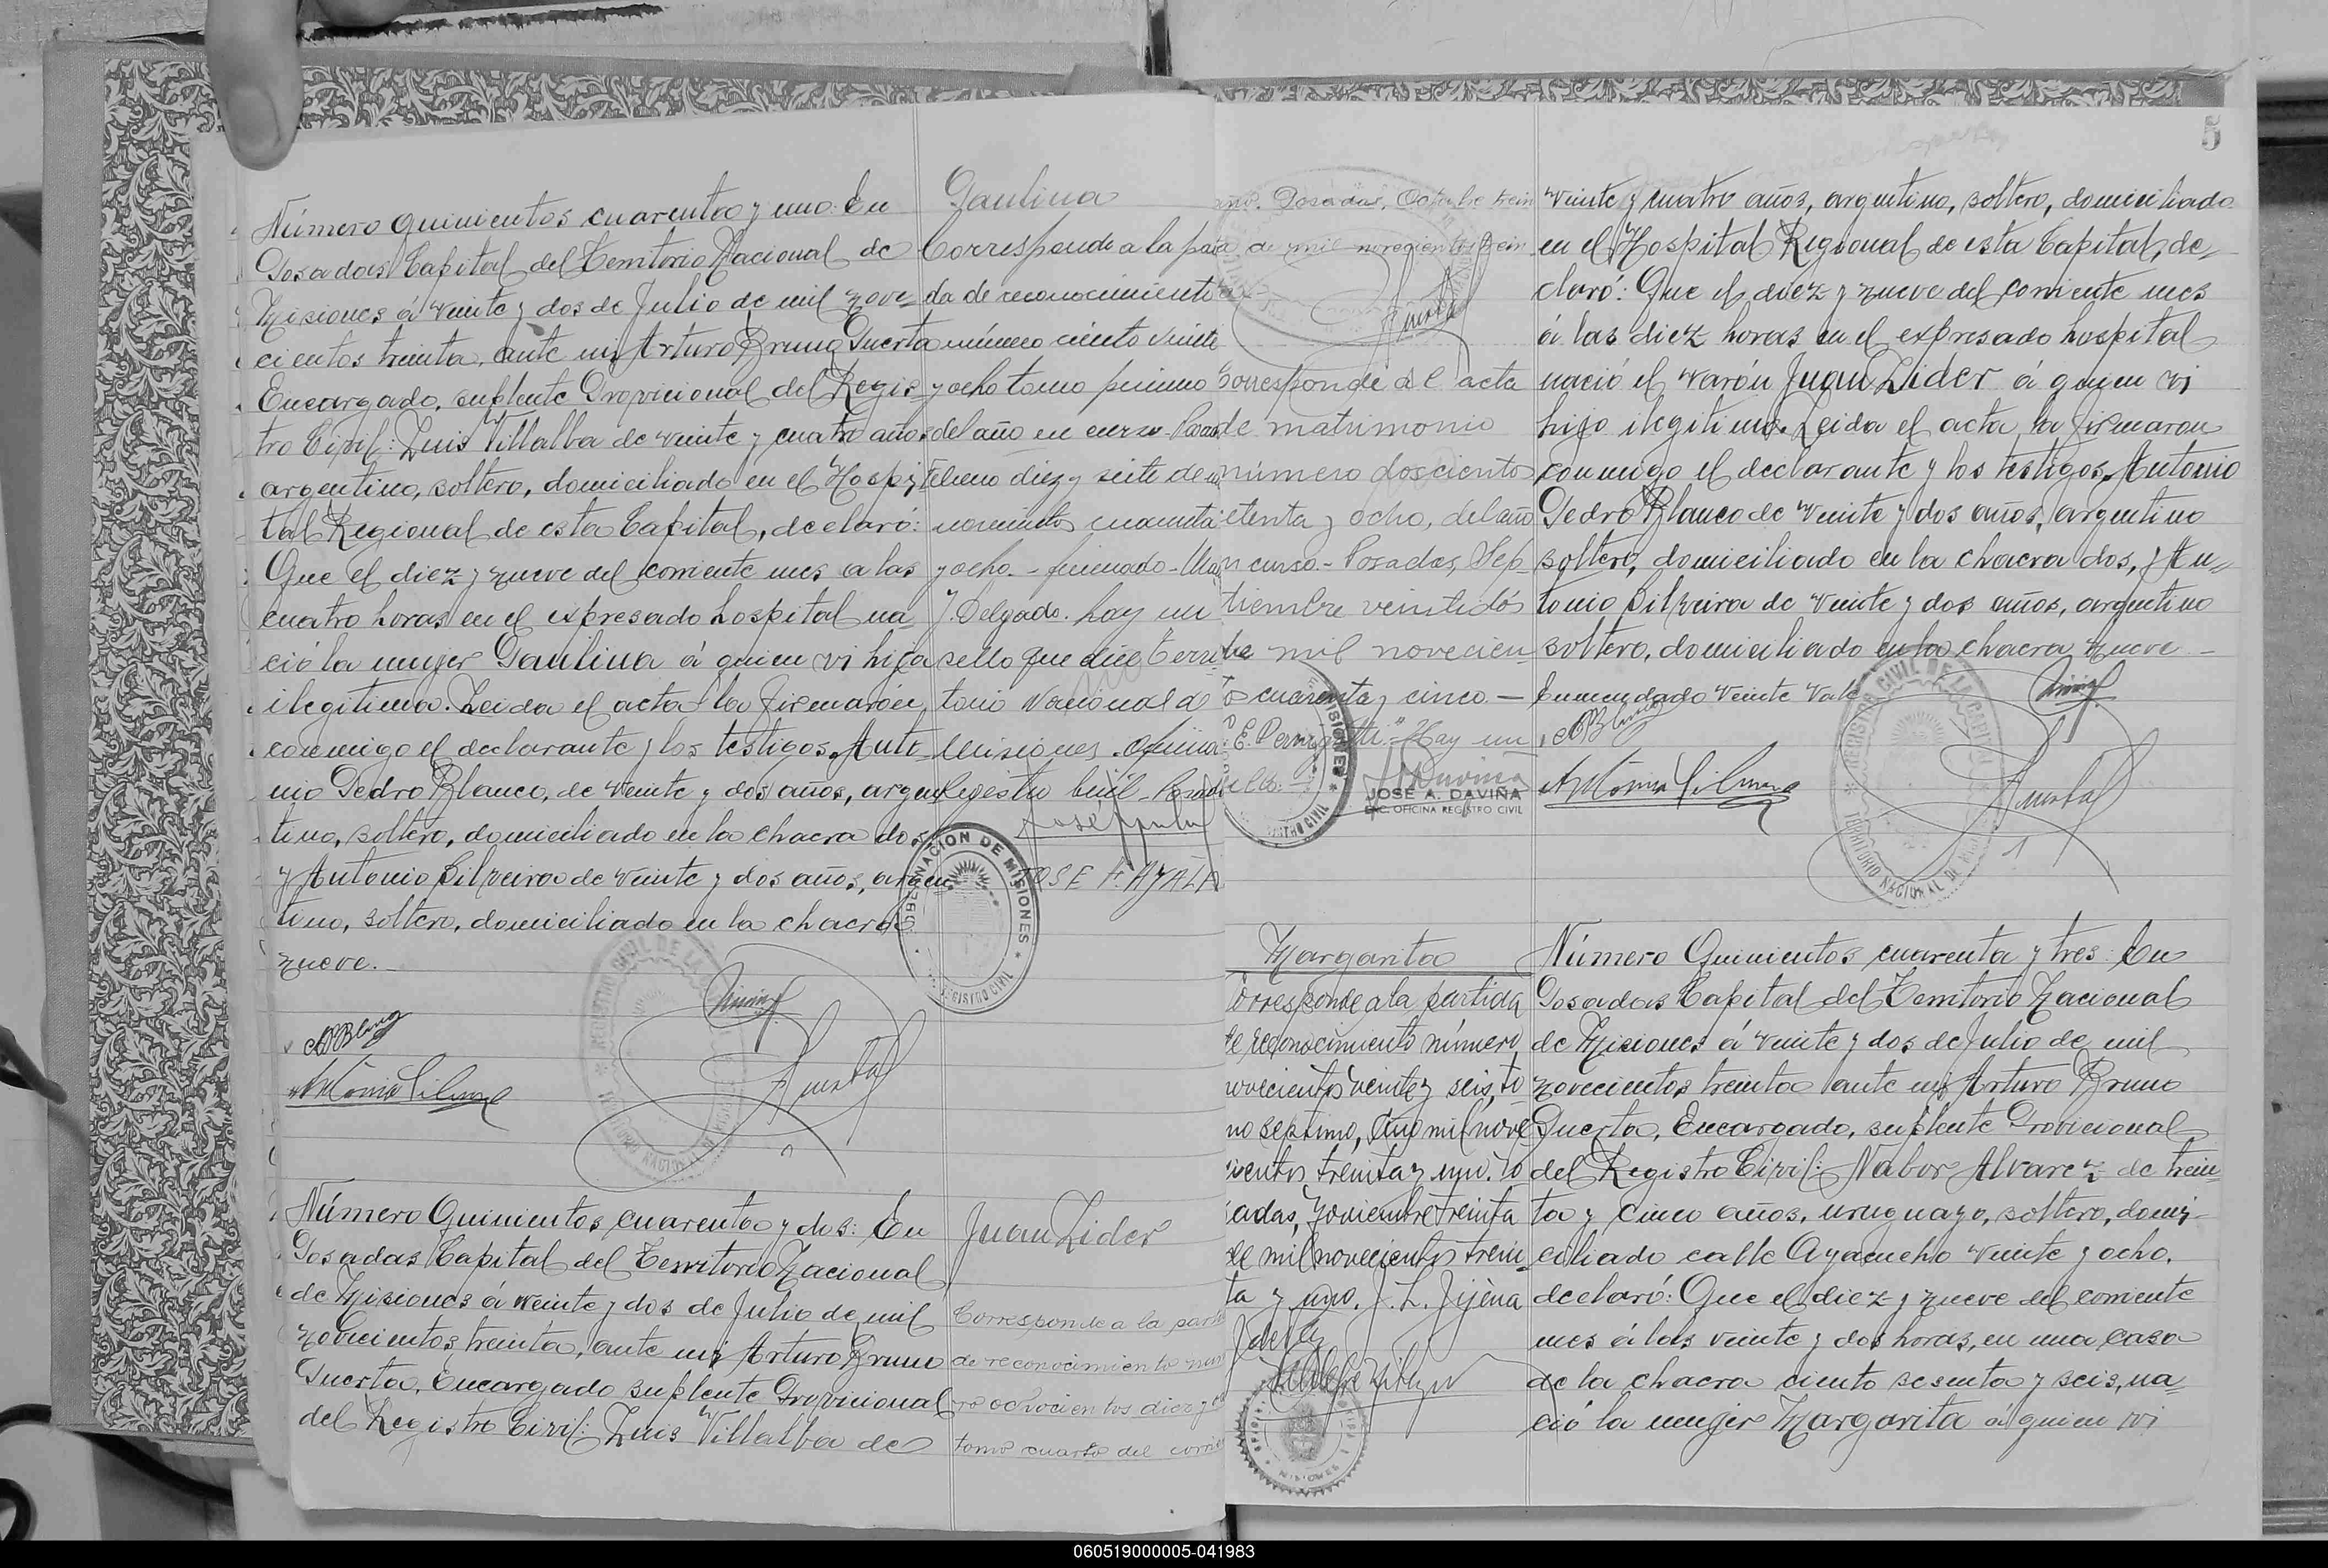 Número quinientos cuarenta y uno: En
Posadas Capital del Territorio Nacional de
Misiones á veinte y dos de Julio de mil nove-
cientos treinta, ante mi Arturo Bruno Puerta
Encargado, suplente Provicional del Regis-
tro Civil: Luis Villalba de veinte y cuatro años
argentino, soltero, domiciliado en el Hospi-
tal Regional de esta Capital, declaró:
Que el diez y nueve del corriente mes a las
cuatro horas en el expresado hospital na-
ció la mujer Paulina á quien vi hija
ilegitima. Leida el acta la firmarón
conmigo el declarante y los testigos Anto-
nio Pedro Blanco, de veinte y dos años, argen
tino, soltero, domiciliado en la chacra dos
y Antonio Silveira de veinte y dos años, argen
tino, soltero, domiciliado en la chacra
nueve.-
Paulina
Corresponde a la parti
da de reconocimiento
número ciento veinte
y ocho tomo primero
del año en curso. Posadas
Febrero diez y siete de mil
novecientos cuarenta
y ocho.- firmado-
J. Delgado. hay un
sello que dice Terri
torio Nacional de
Misiones. Oficina
Registro Civil-Posadas
JOSE F. AYALA
GOBERNACION DE MISIONES
REGISTRO CIVIL
Número Quinientos cuarenta y dos: En
Posadas Capital del Territorio Nacional
de Misiones á veinte y dos de Julio de mil
novecientos treinta, ante mi Arturo Bruno
Puerta, Encargado suplente Provicional
del Registro Civil: Luis Villalba de
Juan Lider
Corresponde a la parti
de reconocimiento núme
ro ochocientos diez y
tomo cuarto del corrien
año. Posadas, Octubre trein
ta de mil novecientos trein
Corresponde al acta
de matrimonio
número doscientos
setenta y ocho, del año
en curso.- Posadas, Sep-
tiembre veintidós
de mil novecien-
tos cuarenta y cinco.-
Hay un
sello.-
JOSE A. DAVIÑA
ENC. OFICINA REGISTRO CIVIL
5
veinte y cuatro años, argentino, soltero, domiciliado
en el Hospital Regional de esta Capital, de-
claró: Que el diez y nueve del corriente mes
á las diez horas en el expresado hospital
nació el varón Juan Lider á quien vi
hijo ilegitimo. Leida el acta la firmaron
conmigo el declarante y los testigos Antonio
Pedro Blanco de veinte y dos años, argentino
soltero, domiciliado en la chacra dos, y An-
tonio Silveira de veinte y dos años, argentino
soltero, domiciliado en la chacra nueve.-
Enmendado veinte Vale
REGISTRO CIVIL DE LA CAPITAL
TERRITORIO NACIONAL DE MISIONES
Margarita
Corresponde a la partida
de reconocimiento número
novecientos veinte y seis, to
mo septimo, año mil nove
cientos treinta y uno. Po
sadas, Noviembre treinta
de mil novecientos trein
ta y uno. J. L. Jijena
Número Quinientos cuarenta y tres: En
Posadas Capital del Territorio Nacional
de Misiones á veinte y dos de Julio de mil
novecientos treinta ante mi Arturo Bruno
Puerta, Encargado, suplente Provicional
del Registro Civil: Nabor Alvarez de trein-
ta y cinco años, uruguayo, soltero, domi-
ciliado calle Ayacucho veinte y ocho,
declaró: Que el diez y nueve del corriente
mes á las veinte y dos horas, en una casa
de la chacra ciento sesenta y seis, na-
ció la mujer Margarita á quien vi
060519000005-041983